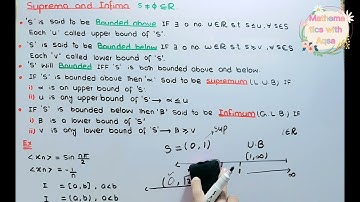 Suprema and Infima S ≠ ϕ ⊆ R
Mathematics with Aqsa
• 'S' is said to be Bounded above if ∃ a no. u ∈ R s.t s ≤ u, ∀ s ∈ S
Each 'u' called upper bound of 'S'.
• 'S' is said to be Bounded below if ∃ a no. v ∈ R s.t s ≥ v, ∀ s ∈ S
Each 'v' called lower bound of 'S'
• 'S' will Bounded IFF 'S' is both bounded above and below.
• If 'S' is bounded above then 'α' said to be supremum (L.U.B) if
i) α is an upper bound of 'S'
ii) u is any upper bound of 'S' → α ≤ u
• If 'S' is bounded below then 'B' said to be Infimum (G.L.B) if
i) B is a lower bound of 'S'
ii) v is any lower bound of 'S' → B ≥ v
Sup
∈ R
Ex
S = (0, 1)
U.B
<xn> = Sin nπ/2
(1, ∞)
<xn> = -1/n
1
∞
I = [a, b), a<b
I = (a, b), a<b